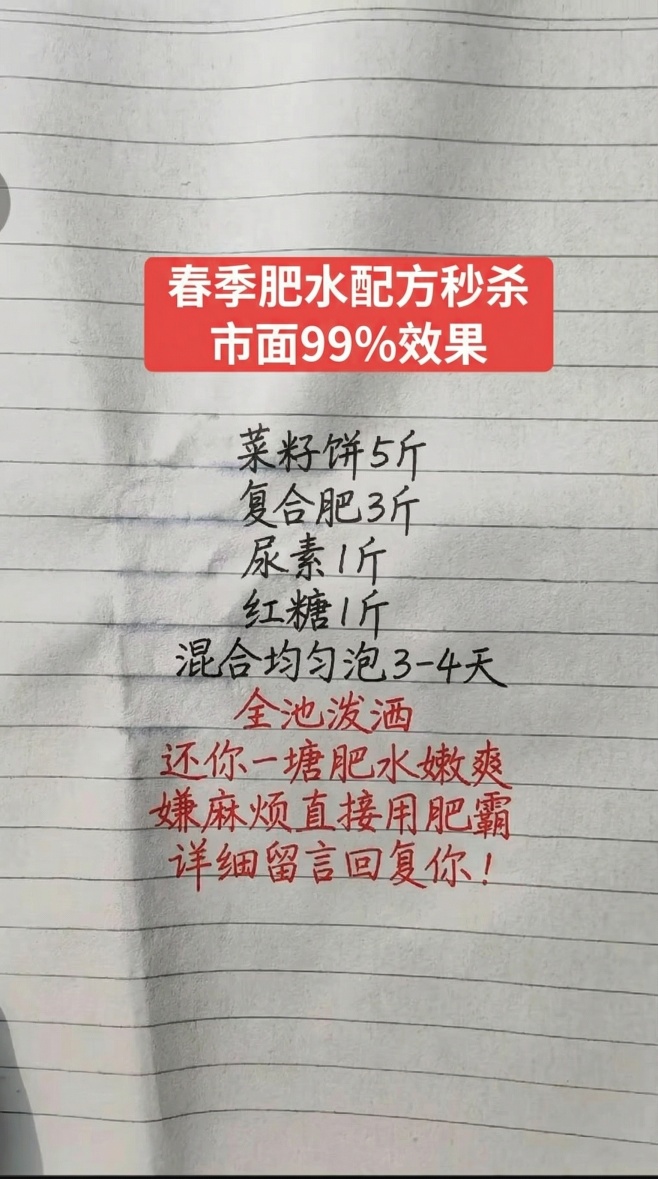 春季肥水配方秒杀
市面99%效果
菜籽饼5斤
复合肥3斤
尿素1斤
红糖1斤
混合均匀泡3-4天
全池泼洒
还你一塘肥水嫩爽
嫌麻烦直接用肥霸
详细留言回复你！